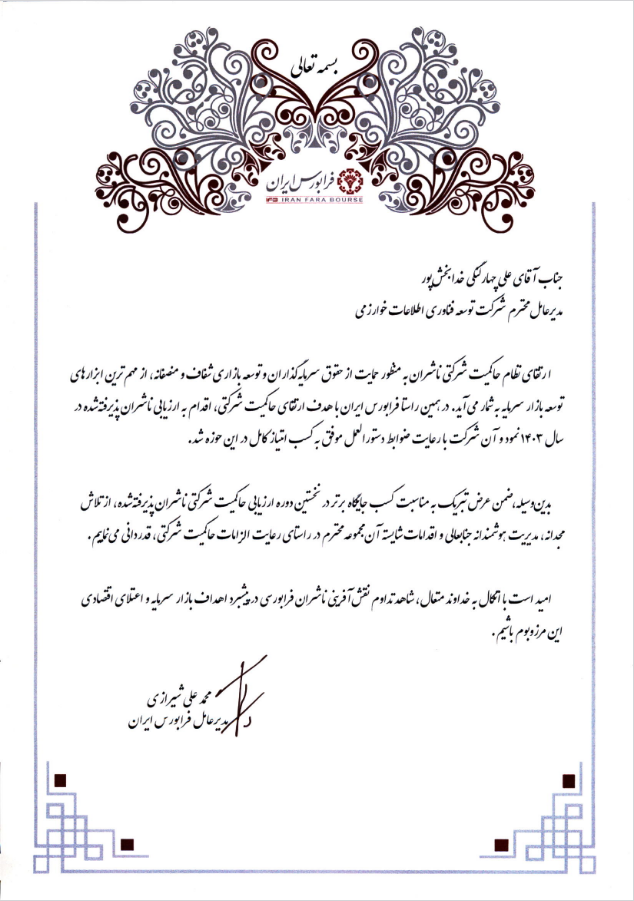 بسمه تعالی
فرابورس ایران
IRAN FARA BOURSE
جناب آقای علی چهارلنگی خدابخش پور
مدیرعامل محترم شرکت توسعه فناوری اطلاعات خوارزمی
ارتقای نظام حاکمیت شرکتی ناشران به منظور حمایت از حقوق سرمایه‌گذاران و توسعه بازاری شفاف و منصفانه، از مهم ترین ابزارهای
توسعه بازار سرمایه به شمار می آید. در همین راستا فرابورس ایران با هدف ارتقای حاکمیت شرکتی، اقدام به ارزیابی ناشران پذیرفته‌شده در
سال ۱۴۰۳ نمود و آن شرکت با رعایت ضوابط دستورالعمل موفق به کسب امتیاز کامل در این حوزه شد.
بدین‌وسیله، ضمن عرض تبریک به مناسبت کسب جایگاه برتر در نخستین دوره ارزیابی حاکمیت شرکتی ناشران پذیرفته‌شده، از تلاش
مجدانه، مدیریت هوشمندانه جنابعالی و اقدامات شایسته آن مجموعه محترم در راستای رعایت الزامات حاکمیت شرکتی، قدردانی می نماییم.
امید است با اتکال به خداوند متعال، شاهد تداوم نقش آفرینی ناشران فرابورسی در پیشبرد اهداف بازار سرمایه و اعتلای اقتصادی
این مرز و بوم باشیم.
محمد علی شیرازی
مدیرعامل فرابورس ایران